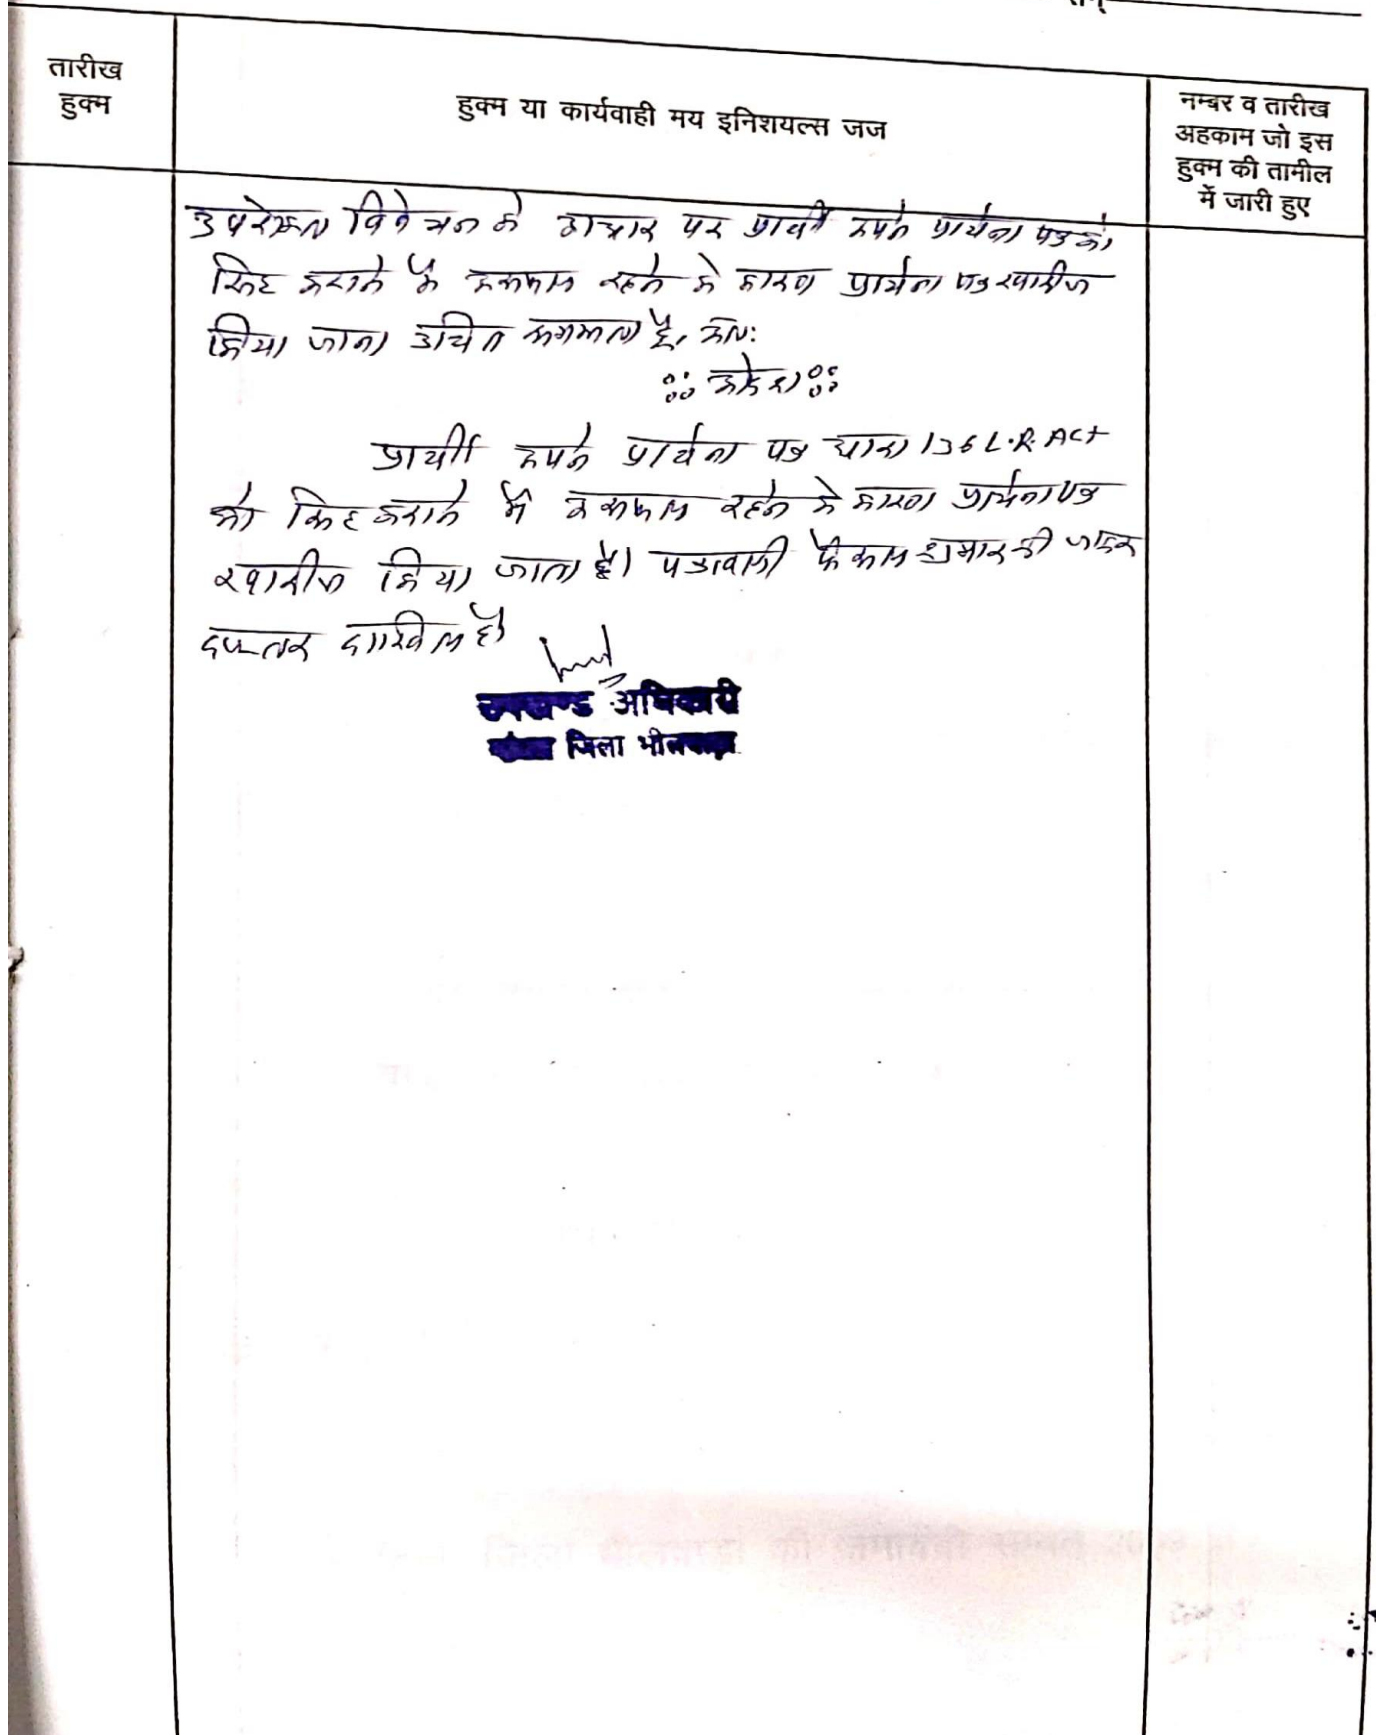 सन्
तारीख
हुक्म
हुक्म या कार्यवाही मय इनिशयल्स जज
नम्बर व तारीख
अहकाम जो इस
हुक्म की तामील
में जारी हुए
उपरोक्त विवेचन के आधार पर प्रार्थी अपने प्रार्थना पत्र को
सिद्ध कराने में असफल रहने के कारण प्रार्थना पत्र खारीज
किया जाना उचित समझता है, अतः
ःः आदेश ःः
प्रार्थी अपने प्रार्थना पत्र धारा 136 L.R. Act
को सिद्ध कराने में असफल रहने के कारण प्रार्थना पत्र
खारीज किया जाता है। पत्रावली फैसल शुमार की जाकर
दफ्तर दाखिल हो
उपखण्ड अधिकारी
जिला भीलवाड़ा